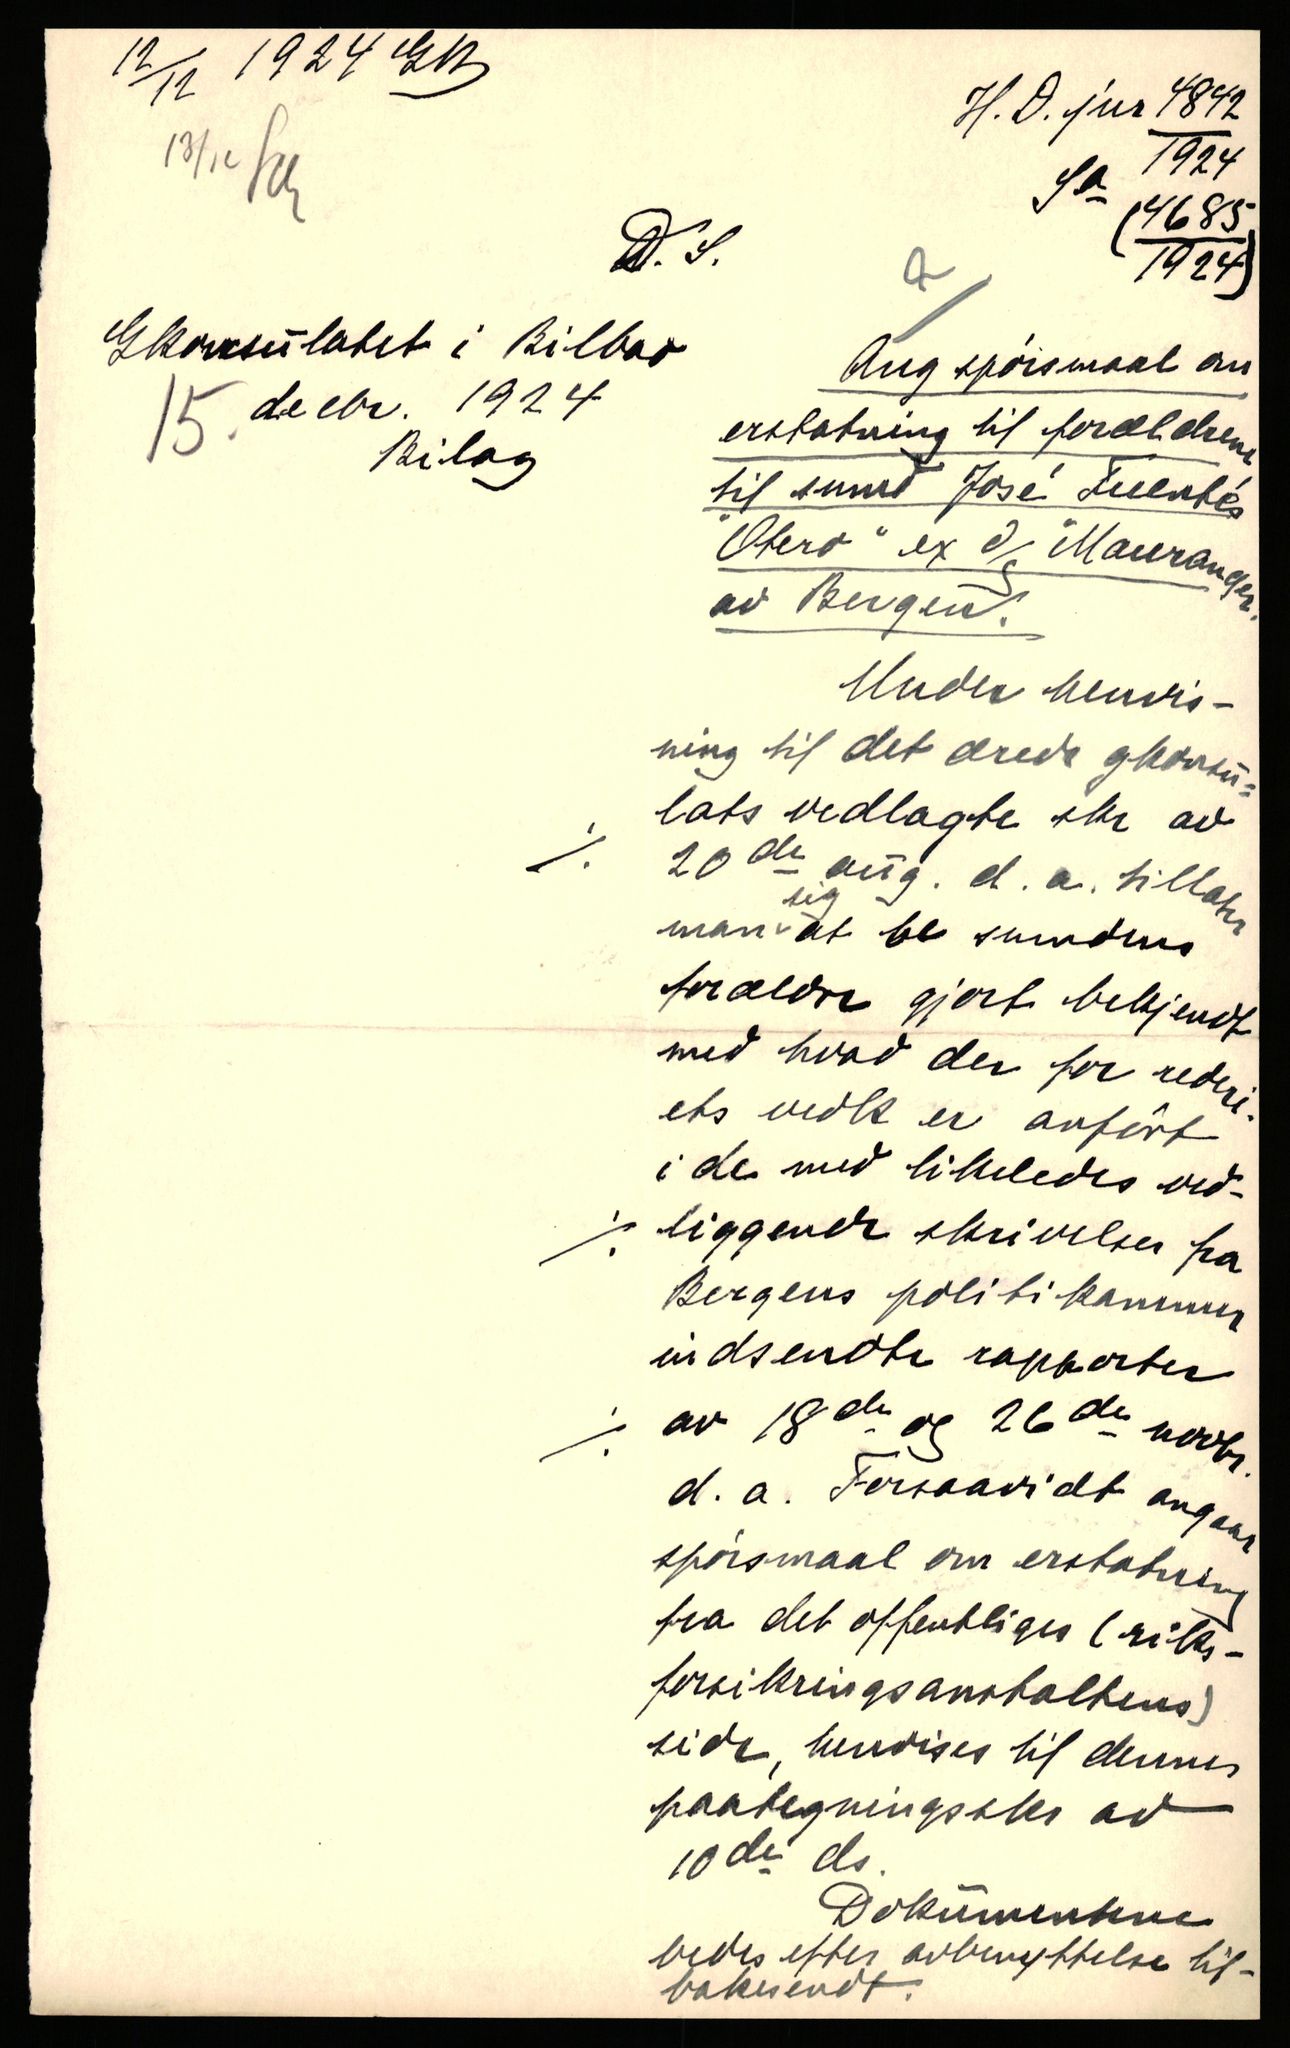 12/12 1924
13/12
H. D. jnr 4842
1924
Sa (4685
1924)
D. S.
Gkonsulatet i Bilbao
15. decbr. 1924
Bilag
Ang spörsmaal om
erstatning til forældrene
til smd José Fuentés
"Otero" ex d/s "Mauranger"
av Bergen.
Under henvis-
ning til det ærede gkonsu-
lats vedlagte skr av
./. 20de aug. d. a. tillater
man sig at be smdens
forældre gjort bekjendt
med hvad der for rederi-
ets vedk er anfört
i de med likeledes ved-
./. liggende skrivelser fra
Bergens politikammer
indsendte rapporter
./. av 18de og 26de novbr.
d. a. Forsaavidt angaar
spörsmaal om erstatning
fra det offentliges (riks-
forsikringsanstaltens)
side, henvises til dennes
paategningsskr av
10de ds.
Dokumentene
bedes efter avbenyttelse til-
bakesendt.